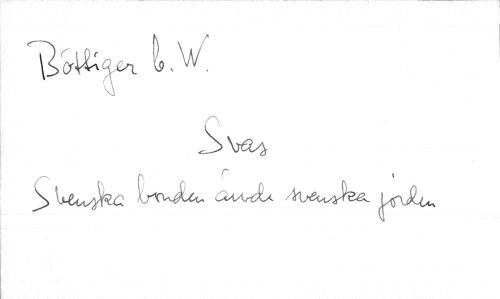 Böttiger C. W.
Svas
Svenska bonden ärvde svenska jorden